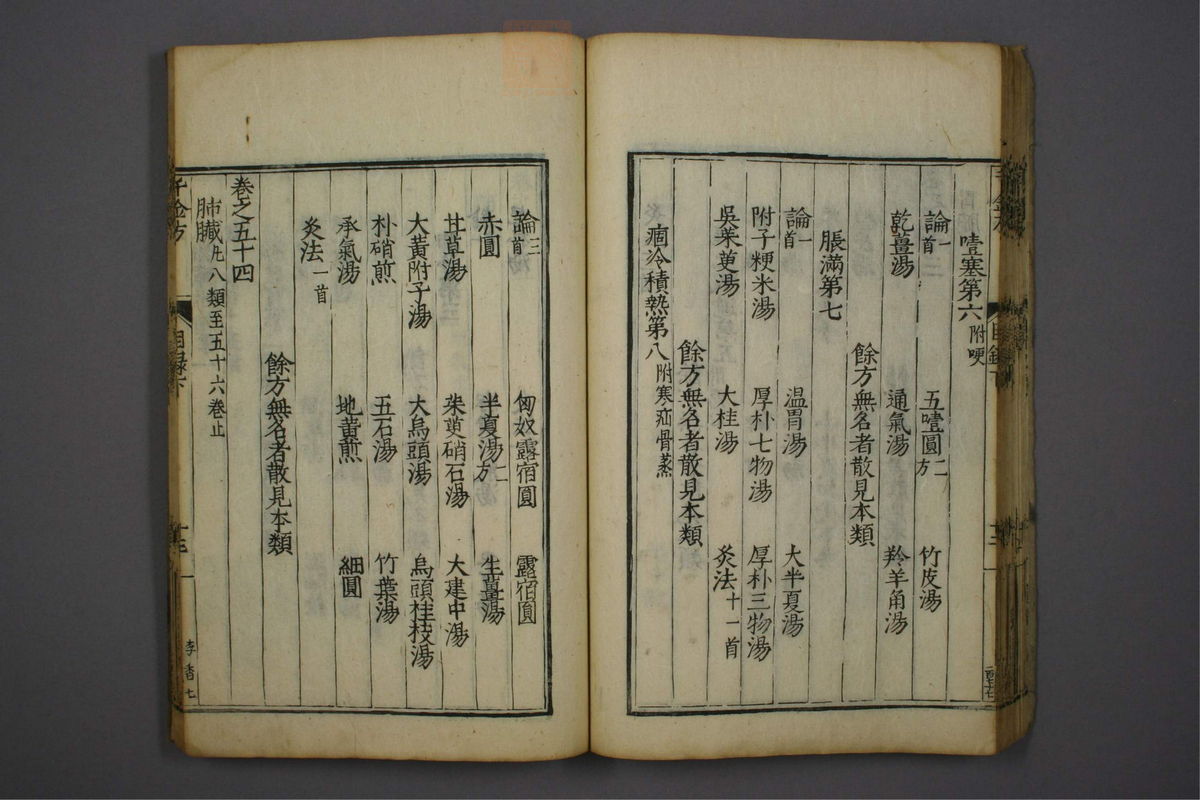 噎塞第六附哽
論一首 五噎圓二方 竹皮湯
乾薑湯 通氣湯 羚羊角湯
餘方無名者散見本類
脹滿第七
論一首 温胃湯 大半夏湯
附子粳米湯 厚朴七物湯 厚朴三物湯
吳茱萸湯 大桂湯 灸法十一首
餘方無名者散見本類
痼冷積熱第八附寒疝骨蒸
論三首 匈奴露宿圓 露宿圓
赤圓 半夏湯二方 生薑湯
甘草湯 茱萸硝石湯 大建中湯
大黄附子湯 大烏頭湯 烏頭桂枝湯
朴硝煎 五石湯 竹葉湯
承氣湯 地黄煎 細圓
灸法一首
餘方無名者散見本類
卷之五十四
肺臟凡八類至五十六卷止
千金方 目録下 十三 李香七